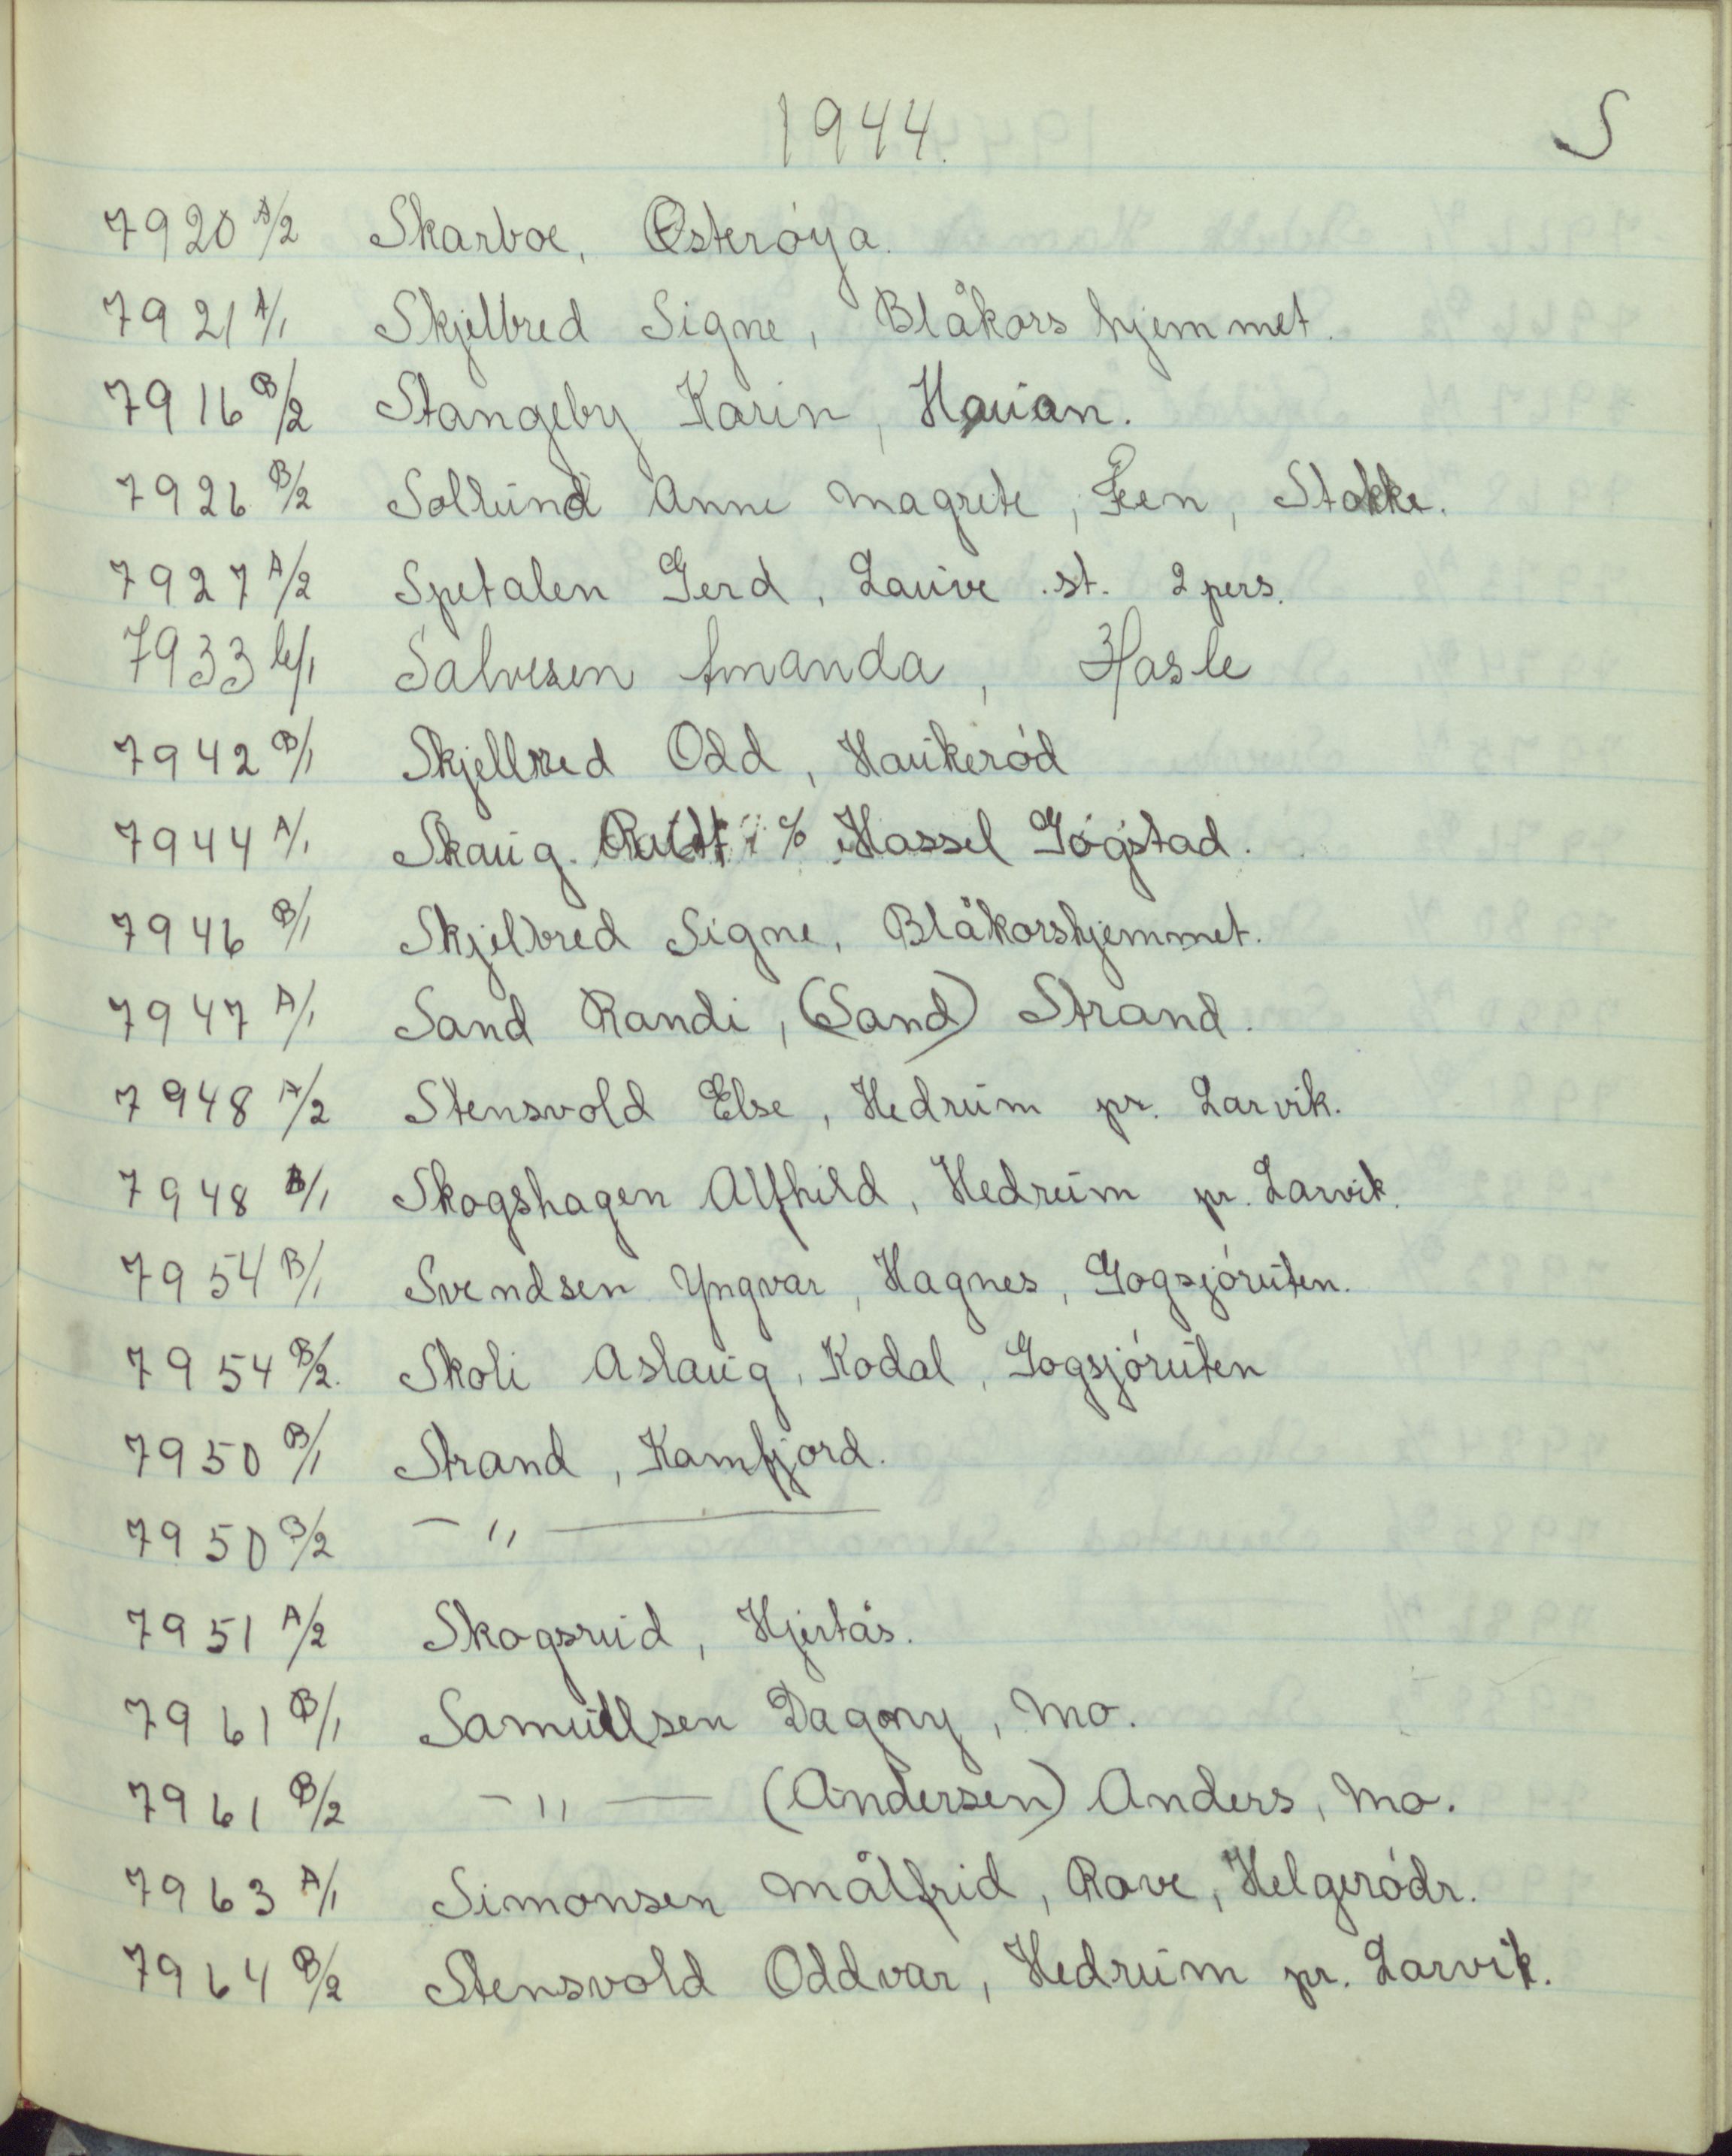 1944.
S
7920 A/2 Skarboe, Østerøya.
7921 A/1 Skjelbred Signe, Blåkors hjemmet.
7916 B/2 Stangeby Karin, Hauan.
7926 B/2 Sollund Anne Magrete, Feen, Stokke.
7927 A/2 Spetalen Gerd, Lauve .st. 2 pers.
7933 b/1 Salvesen Amanda, Hasle
7942 B/1 Skjellred Odd, Haukerød
7944 A/1 Skaug. % Hassel Gøgstad.
7946 B/1 Skjelbred Signe, Blåkorshjemmet.
7947 A/1 Sand Randi, (Sand) Strand.
7948 A/2 Stensvold Else, Hedrum pr. Larvik.
7948 B/1 Skogshagen Alfhild, Hedrum pr. Larvik.
7954 B/1 Svendsen Yngvar, Hagnes, Gogsjøruten.
7954 B/2. Skoli Aslaug, Kodal, Gogsjøruten
7950 B/1 Strand, Kamfjord.
7950 B/2 — " —
7951 A/2 Skogsrud, Hjertås.
7961 B/1 Samuelsen Dagony, Mo.
7961 B/2 — " — (Andersen) Anders, Mo.
7963 A/1 Simonsen Målfrid, Rove, Helgerødr.
7964 B/2 Stensvold Oddvar, Hedrum pr. Larvik.